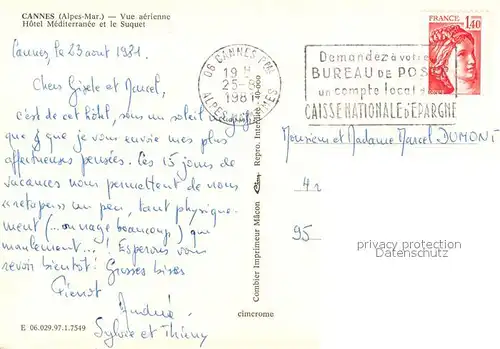 CANNES (Alpes-Mar.) — Vue aérienne
Hôtel Méditerranée et le Suquet
Cannes, le 23 aout 1981.
Chers Gisèle et Marcel,
c'est de cet hôtel, sous un soleil
que je vous envoie mes plus
affectueuses pensées. Ces 15 jours de
vacances nous permettent de nous
"retaper" un peu, tant physique-
ment (... on nage beaucoup) que
moralement...! Esperons vous
revoir bientôt! Grosses bises
Pierrot
Andrée
Sylvie et Thierry
E 06.029.97.1.7549
cimcrome
Combier Imprimeur Mâcon Cim Repro. Interdite
06 CANNES PPAL
19 H
25-8
1981
ALPES MARITIMES
Demandez à votre
BUREAU DE POSTE
un compte local
CAISSE NATIONALE D'EPARGNE
FRANCE
1,40
Monsieur et Madame Marcel DUMONT
4 r
95
privacy protection
Datenschutz